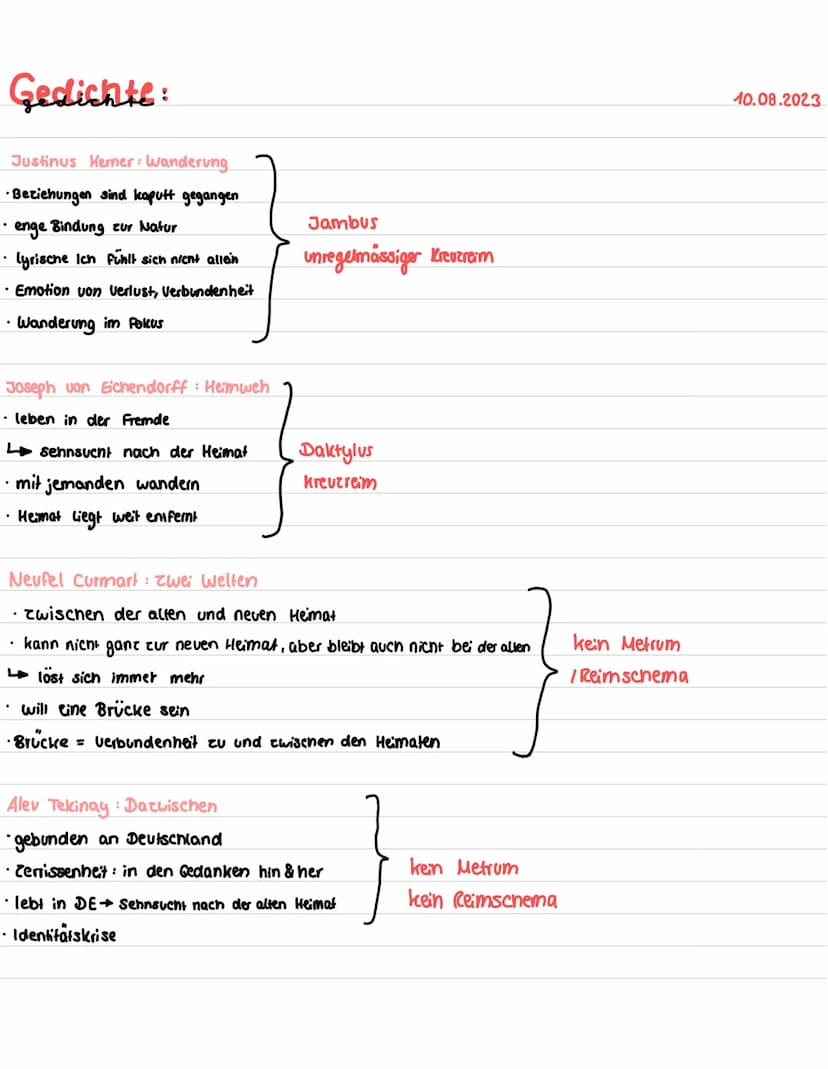 Gedichte:
gedichte
10.08.2023
Justinus Kerner: Wanderung
· Beziehungen sind kaputt gegangen
· enge Bindung zur Natur
· lyrische Ich fühlt sich nicht allein
· Emotion von Verlust, Verbundenheit
· Wanderung im Fokus
Jambus
unregelmässiger Kreuzreim
Joseph von Eichendorff: Heimweh
· leben in der Fremde
↳ sehnsucht nach der Heimat
· mit jemanden wandern
· Heimat liegt weit entfernt
Daktylus
kreuzreim
Neufel Cumart: zwei Welten
· zwischen der alten und neuen Heimat
· kann nicht ganz zur neuen Heimat, aber bleibt auch nicht bei der alten
↳ löst sich immer mehr
· will eine Brücke sein
· Brücke = Verbundenheit zu und zwischen den Heimaten
kein Metrum
/Reimschema
Alev Tekinay: Dazwischen
· gebunden an Deutschland
· Zerrissenheit: in den Gedanken hin & her
· lebt in DE → Sehnsucht nach der alten Heimat
· Identitätskrise
kein Metrum
kein Reimschema